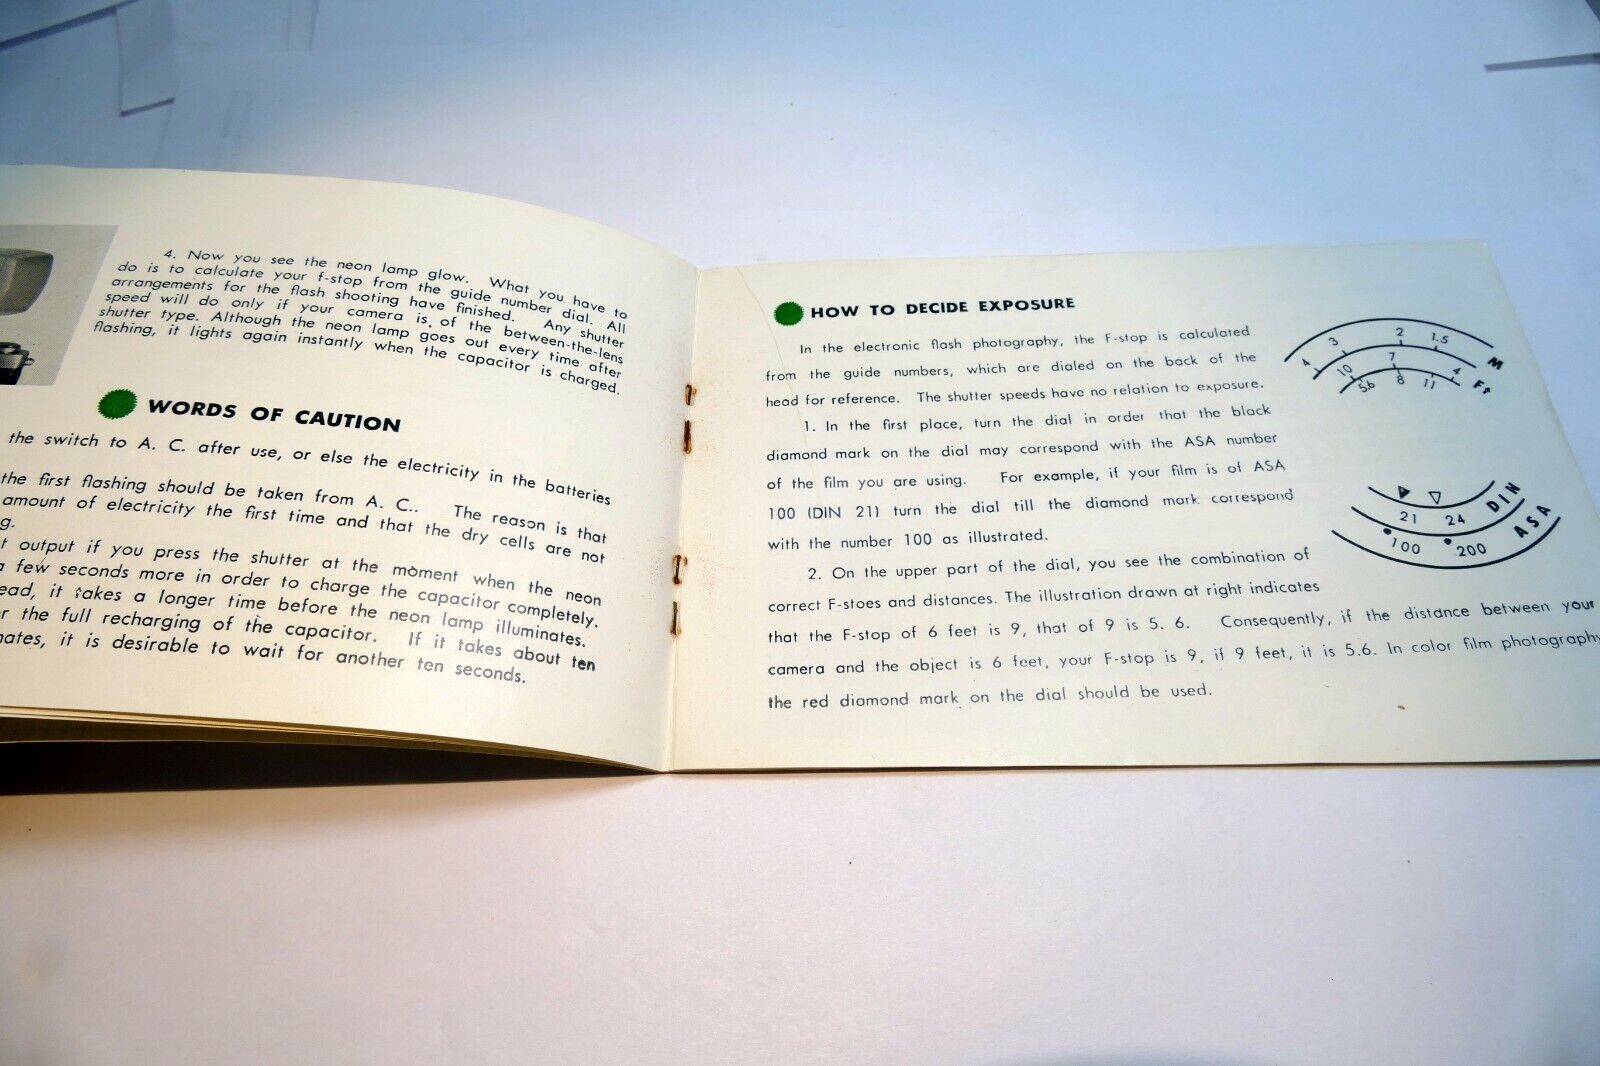 4. Now you see the neon lamp glow. What you have to
do is to calculate your f-stop from the guide number dial. All
arrangements for the flash shooting have finished. Any shutter
speed will do only if your camera is of the between-the-lens
shutter type. Although the neon lamp goes out every time after
flashing, it lights again instantly when the capacitor is charged.
WORDS OF CAUTION
the switch to A. C. after use, or else the electricity in the batteries
the first flashing should be taken from A. C.. The reason is that
amount of electricity the first time and that the dry cells are not
g.
t output if you press the shutter at the moment when the neon
a few seconds more in order to charge the capacitor completely.
ead, it takes a longer time before the neon lamp illuminates.
r the full recharging of the capacitor. If it takes about ten
nates, it is desirable to wait for another ten seconds.
HOW TO DECIDE EXPOSURE
In the electronic flash photography, the F-stop is calculated
from the guide numbers, which are dialed on the back of the
head for reference. The shutter speeds have no relation to exposure.
1. In the first place, turn the dial in order that the black
diamond mark on the dial may correspond with the ASA number
of the film you are using. For example, if your film is of ASA
100 (DIN 21) turn the dial till the diamond mark correspond
with the number 100 as illustrated.
2. On the upper part of the dial, you see the combination of
correct F-stoes and distances. The illustration drawn at right indicates
that the F-stop of 6 feet is 9, that of 9 is 5. 6. Consequently, if the distance between your
camera and the object is 6 feet, your F-stop is 9, if 9 feet, it is 5.6. In color film photography
the red diamond mark on the dial should be used.
4 3 2 1.5 M
10 7 4 Ft
5.6 8 11
21 24 DIN
100 200 ASA